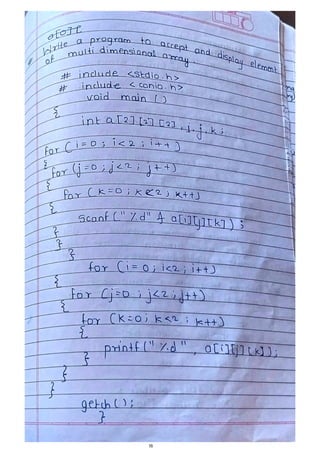 Write a program to accept and display element
of multi dimensional array.
# include <stdio.h>
# include <conio.h>
void main ()
{
int a[2][2][2], i, j, k;
for (i=0; i<2; i++)
{
for (j=0; j<2; j++)
{
for (k=0; k<2; k++)
{
scanf ("%d" & a[i][j][k]);
}
}
}
for (i=0; i<2; i++)
{
for (j=0; j<2; j++)
{
for (k=0; k<2; k++)
{
printf ("%d", a[i][j][k]);
}
}
}
getch();
}